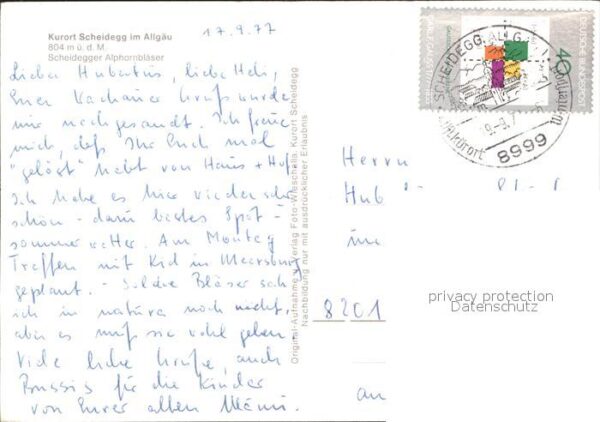 17.9.77
Kurort Scheidegg im Allgäu
804 m ü. d. M.
Scheidegger Alphornbläser
Lieber Hubertus, liebe Heli,
Euer Kachaner Gruß wurde
mir nachgesandt. Ich freue
mich, daß Ihr Euch mal
"gelöst" habt von Haus + Hof.
Ich habe es hier wieder sehr
schön - dazu bestes Spät-
sommerwetter. Am Montag
Treffen mit Kid in Meersburg
geplant. - Solche Bläser sah
ich in natura noch nicht,
aber es muß sie wohl geben.
Viele liebe Grüße, auch
Bussis für die Kinder
von Eurer alten Mimi.
Original-Aufnahme u. Verlag Foto-Wieschalla, Kurort Scheidegg
Nachbildung nur mit ausdrücklicher Erlaubnis
DEUTSCHE BUNDESPOST
40
CARL FRIEDRICH GAUSS
SCHEIDEGG, ALLGÄU
Heilklimat. Kurort
8999
Herrn
Hub
im
8201
an
privacy protection
Datenschutz